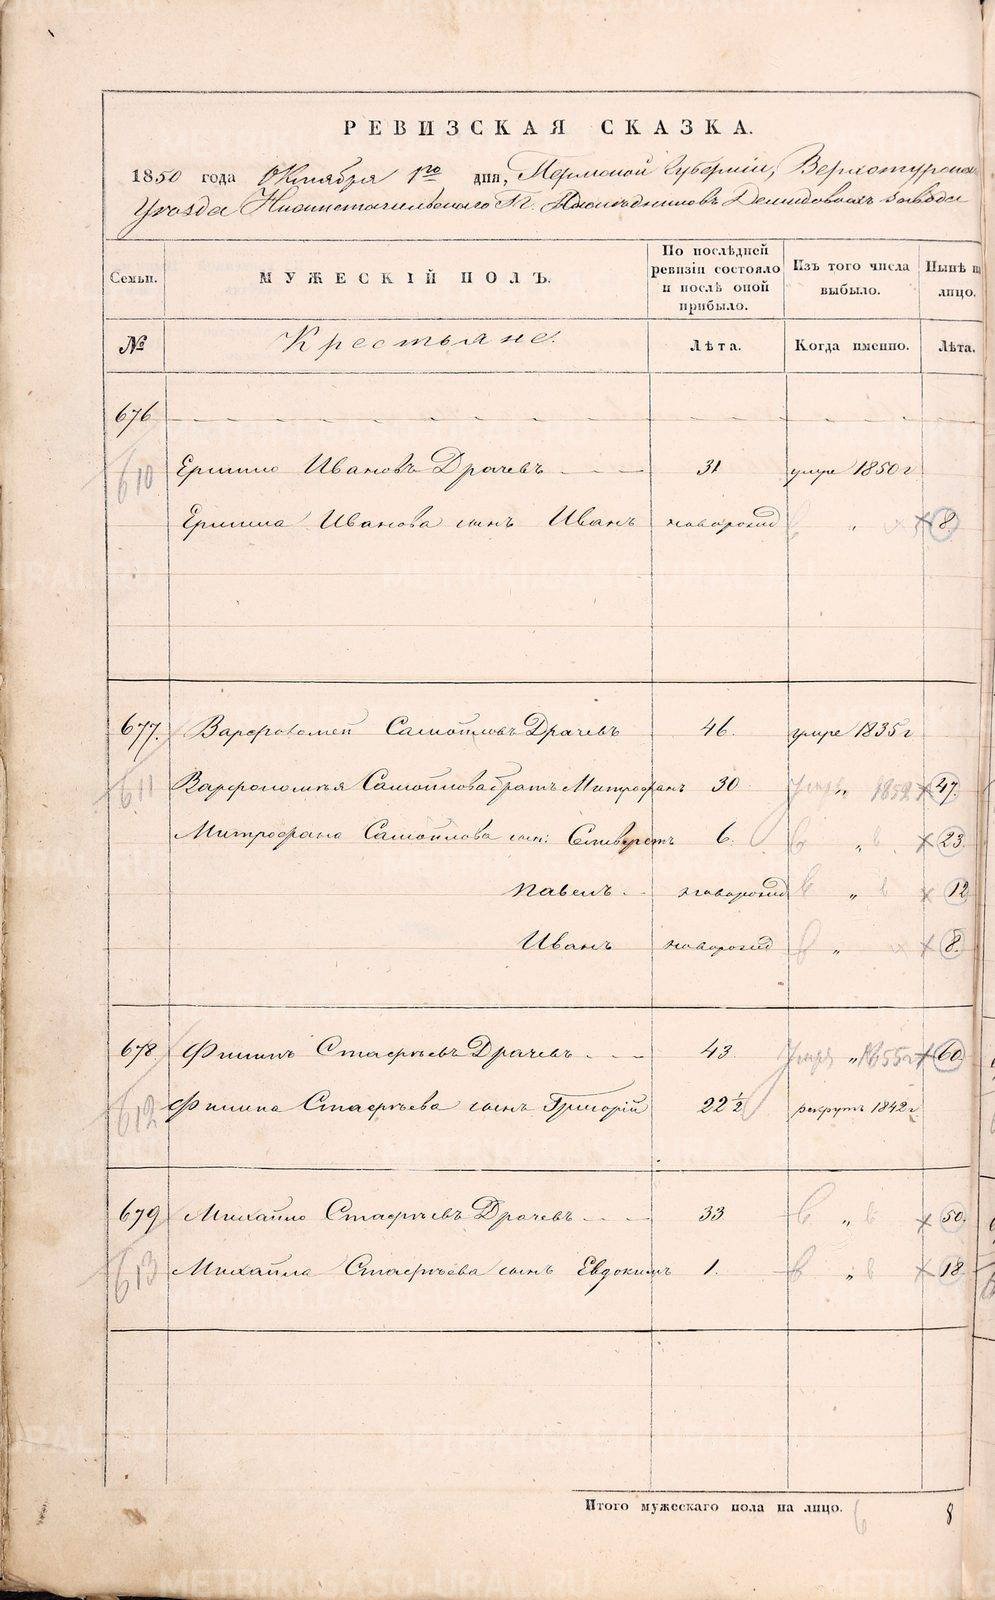 РЕВИЗСКАЯ СКАЗКА.
1850 года Октября 1го дня, Пермской Губернии, Верхотурскаго
Уезда Нижнетагильскаго Гг. Наследниковъ Демидовыхъ завода
Семьи. МУЖЕСКІЙ ПОЛЪ. По послѣдней ревизіи состояло и послѣ оной прибыло. Изъ того числа выбыло. Нынѣ н лицо.
№ Крестьяне. Лѣта. Когда именно. Лѣта.
676
610 Ермило Ивановъ Драчевъ 31 умре 1850 г
Ермила Иванова сынъ Иванъ наворожд " 8.
677. Варфоломей Самойловъ Драчевъ 46. умре 1835 г
611 Варфоломея Самойлова братъ Митрофанъ 30 Умръ " 1852 47.
Митрофана Самойлова сын: Селиверстъ 6. в " в 23.
Павелъ наворожд в " в 12
Иванъ наворожд в " 8.
678. Филипъ Стафѣевъ Драчевъ 43. Умръ " 1855 г 60.
612 Филипа Стафѣева сынъ Григорій 22 ½ рекрутъ 1842 г.
679 Михайло Стафѣевъ Драчевъ 33 в " в 50.
613 Михайла Стафѣева сынъ Евдокимъ 1. в " в 18
Итого мужескаго пола на лицо. 6 8
METRIKI.GASO-URAL.RU